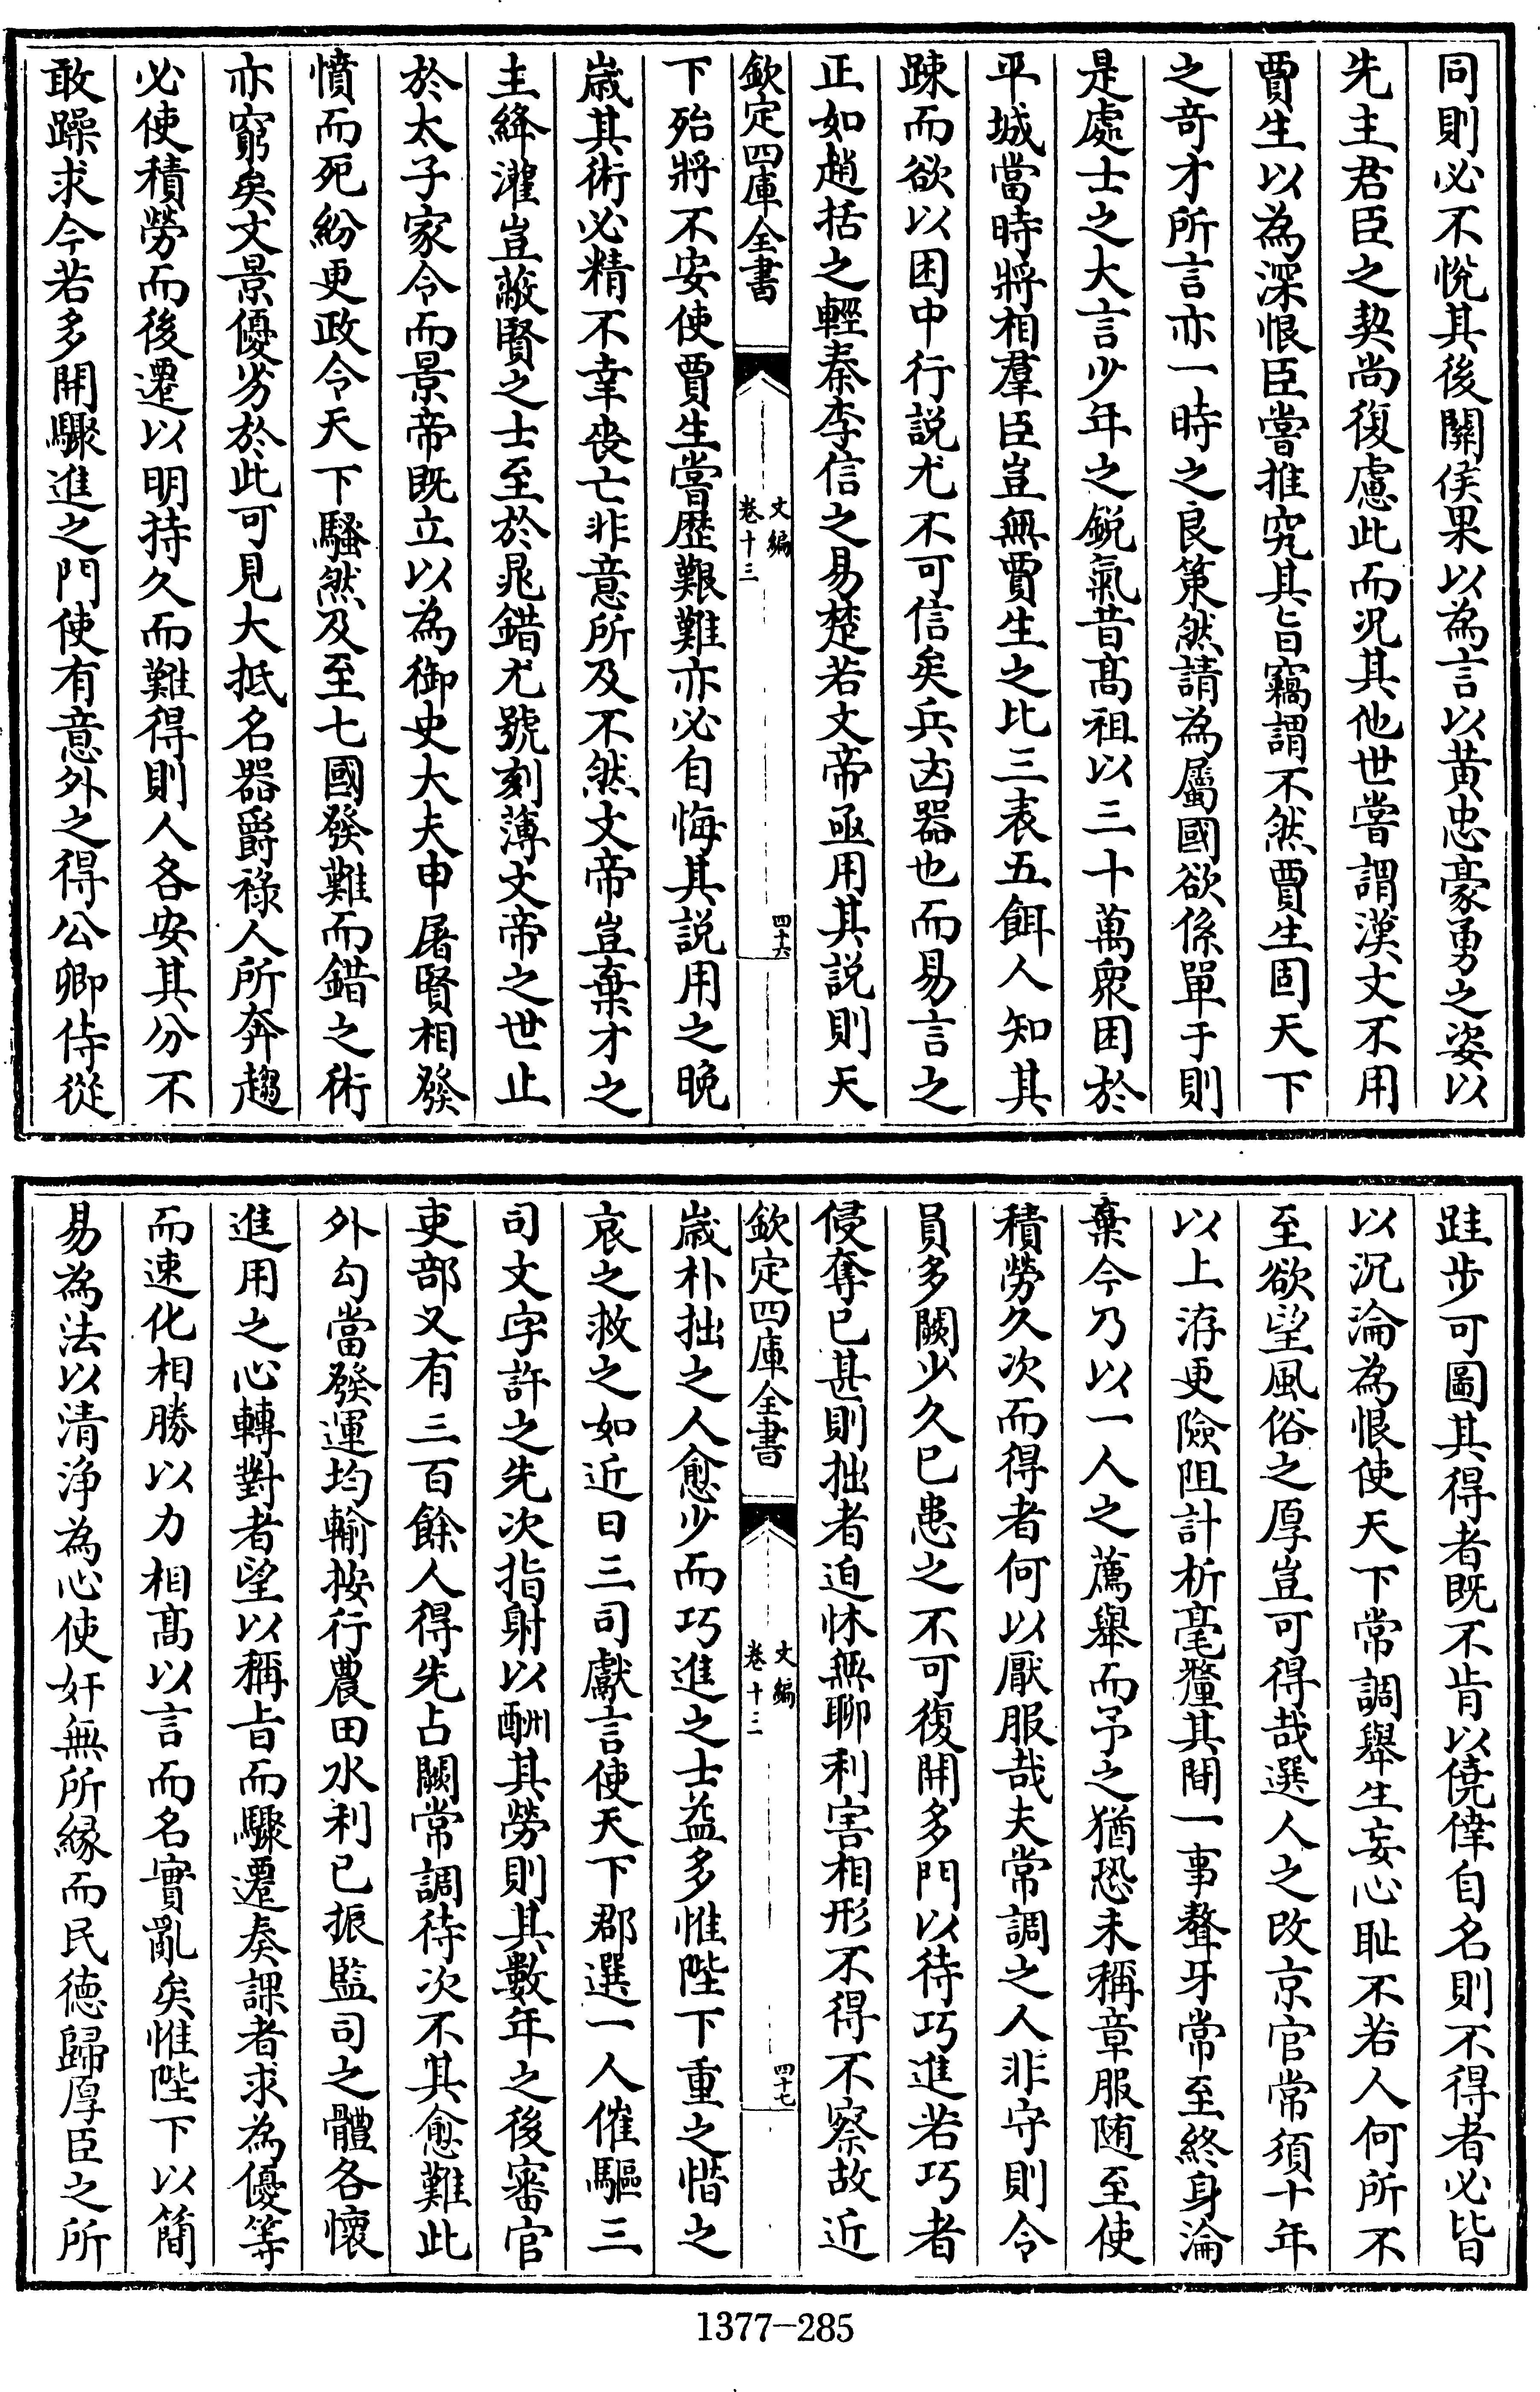 同則必不悅其後關侯果以為言以黄忠豪勇之姿以
先主君臣之契尚復慮此而況其他世嘗謂漢文不用
賈生以為深恨臣嘗推究其旨竊謂不然賈生固天下
之竒才所言亦一時之良策然請為屬國欲係單于則
是處士之大言少年之鋭氣昔髙祖以三十萬衆困於
平城當時將相羣臣豈無賈生之比三表五餌人知其
踈而欲以困中行説尤不可信矣兵凶器也而易言之
正如趙括之輕秦李信之易楚若文帝亟用其説則天
欽定四庫全書
文編
卷十三
四十六
下殆將不安使賈生嘗歴艱難亦必自悔其説用之晚
歲其術必精不幸丧亡非意所及不然文帝豈棄才之
主絳灌豈蔽賢之士至於鼂錯尤號刻薄文帝之世止
於太子家令而景帝既立以為御史大夫申屠賢相發
憤而死紛更政令天下騷然及至七國發難而錯之術
亦窮矣文景優劣於此可見大抵名器爵祿人所奔趨
必使積勞而後遷以明持久而難得則人各安其分不
敢躁求今若多開驟進之門使有意外之得公卿侍從
跬步可圖其得者既不肯以僥倖自名則不得者必皆
以沉淪為恨使天下常調舉生妄心耻不若人何所不
至欲望風俗之厚豈可得哉選人之改京官常須十年
以上洊更險阻計析毫釐其間一事聱牙常至終身淪
棄今乃以一人之薦舉而予之猶恐未稱章服随至使
積勞久次而得者何以厭服哉夫常調之人非守則令
員多闕少久已患之不可復開多門以待巧進若巧者
侵奪已甚則拙者迫怵無聊利害相形不得不察故近
欽定四庫全書
文編
卷十三
四十七
歲朴拙之人愈少而巧進之士益多惟陛下重之惜之
哀之救之如近日三司獻言使天下郡選一人催驅三
司文字許之先次指射以酬其勞則其數年之後審官
吏部又有三百餘人得先占闕常調待次不其愈難此
外勾當發運均輸按行農田水利已振監司之體各懷
進用之心轉對者望以稱旨而驟遷奏課者求為優等
而速化相勝以力相髙以言而名實亂矣惟陛下以簡
易為法以清浄為心使奸無所縁而民德歸厚臣之所
1377-285